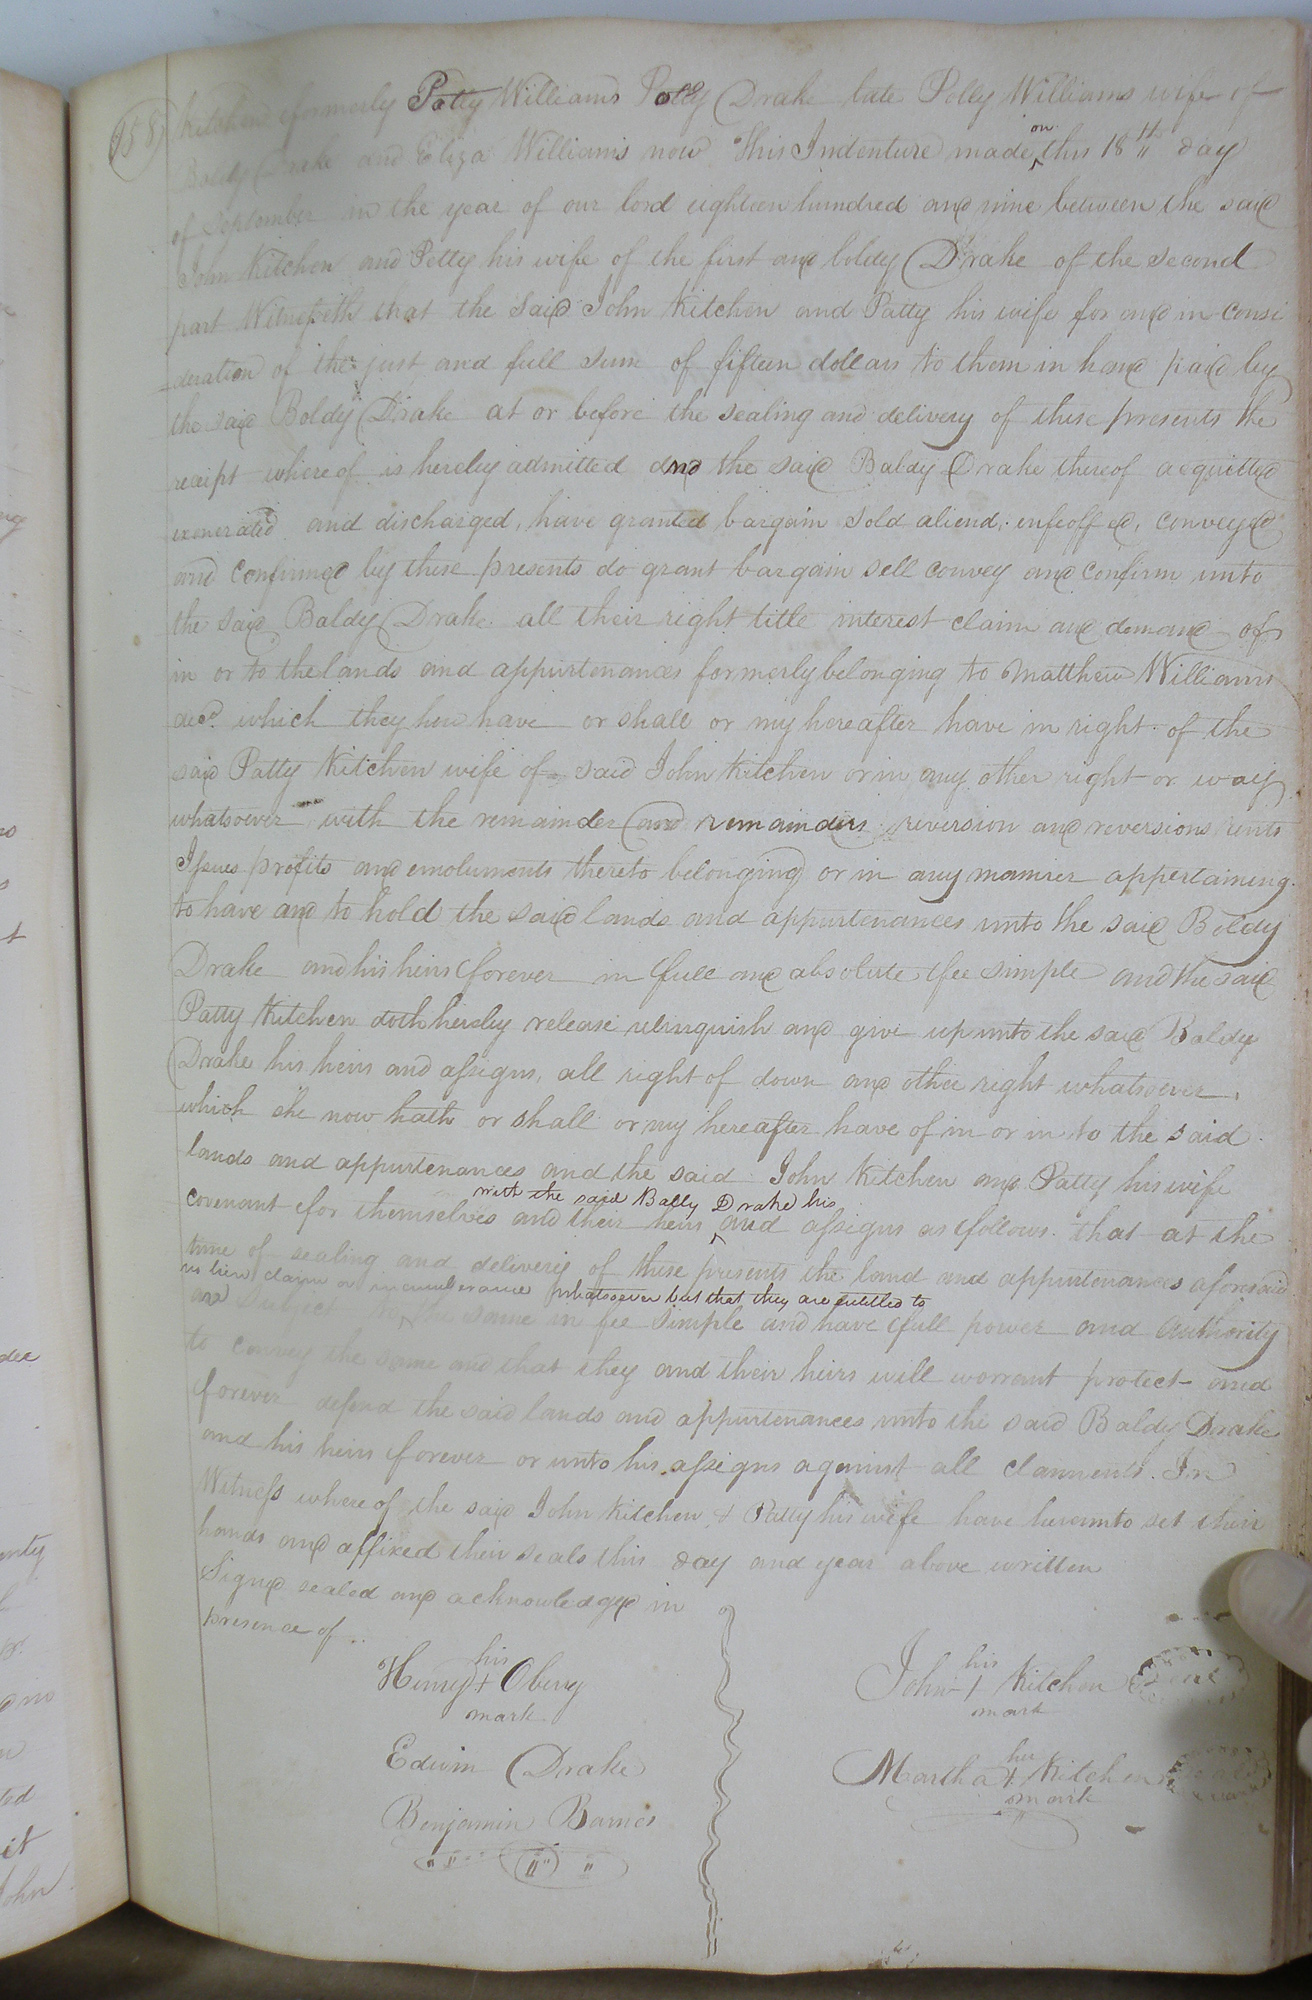 158)
Kitchen formerly Patty Williams Polly Drake late Polly Williams wife of
Baldy Drake and Eliza Williams now This Indenture made on this 18th day
of September in the year of our lord eighteen hundred and nine between the said
John Kitchen and Petty his wife of the first and boldy Drake of the second
part Witnesseth that the said John Kitchen and Patty his wife for and in consi
deration of the just and full sum of fifteen dollars to them in hand paid by
the said Boldy Drake at or before the sealing and delivery of these presents the
receipt whereof is hereby admitted and the said Baldy Drake thereof acquitted
exonerated and discharged, have granted bargain sold aliend, enfeoffed, conveyed
and confirmed by these presents do grant bargain sell convey and confirm unto
the said Baldy Drake all their right title interest claim and demand of
in or to the lands and appurtenances formerly belonging to Matthew Williams
decd. which they now have or shall or my hereafter have in right of the
said Patty Kitchen wife of said John Kitchen or in any other right or way
whatsoever with the remainder and remainders reversion and reversions rents
Issues profits and emoluments thereto belonging or in any manner appertaining
to have and to hold the said lands and appurtenances unto the said Boldy
Drake and his heirs forever in full and absolute fee simple and the said
Patty Kitchen doth hereby release relinquish and give up unto the said Baldy
Drake his heirs and assigns, all right of down and other right whatsoever,
which she now hath or shall or my hereafter have of in or in to the said
lands and appurtenances and the said John Kitchen and Patty his wife
with the said Bally Drake his
covenant for themselves and their heirs and assigns as follows. that at the
time of sealing and delivery of these presents the land and appurtenances aforesaid
no lien claim or incumberance whatsoever but that they are entitled to
are subject to the same in fee simple and have full power and authority
to convey the same and that they and their heirs will worrant protect and
forever defend the said lands and appurtenances unto the said Baldy Drake
and his heirs forever or unto his assigns against all claments. In
Witness whereof the said John Kitchen & Patty his wife have hereunto set their
hands and affixed their seals this day and year above written
Signed sealed and acknowledged in
presence of
his
Henry + Oberry
mark
Edwin Drake
Benjamin Barnes
his
John + Kitchen Seal
mark
her
Martha + Kitchen Seal
mark